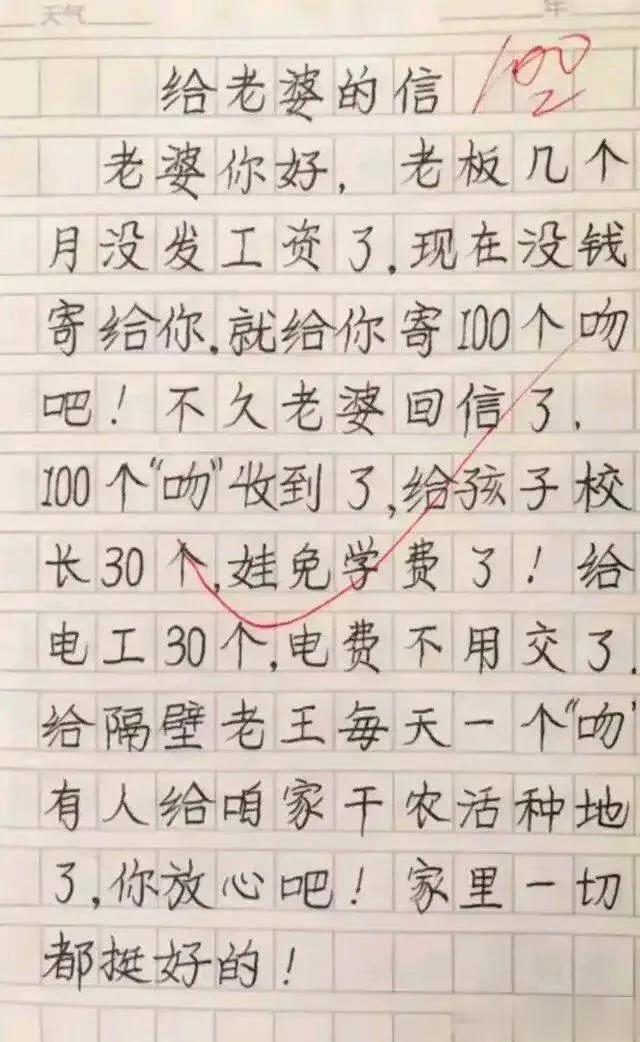 天气 年
给老婆的信 100
老婆你好，老板几个
月没发工资了.现在没钱
寄给你.就给你寄100个吻
吧！不久老婆回信了.
100个“吻”收到了,给孩子校
长30个,娃免学费了！给
电工30个,电费不用交了.
给隔壁老王每天一个“吻”
有人给咱家干农活种地
了,你放心吧！家里一切
都挺好的！